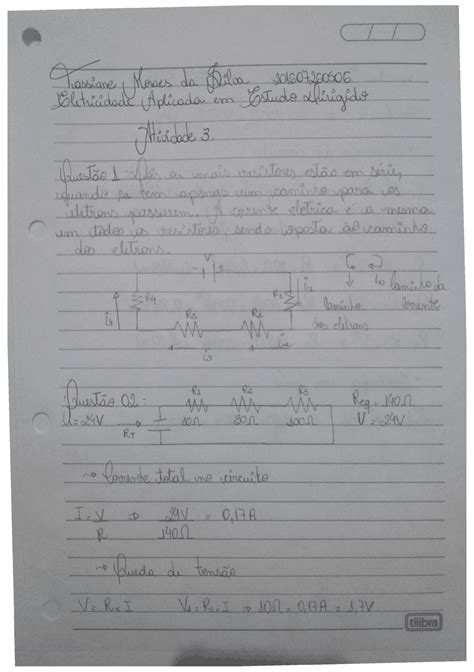 Tassiane Moraes da Silva 201607200506
Eletricidade Aplicada em Estudo Dirigido
Atividade 3.
Questão 1: Dois ou mais resistores estão em série,
quando se tem apenas um caminho para os
elétrons passarem. A corente elétrica é a mesma
em todos os resistores, sendo oposta ao caminho
dos eletrons.
V
R4 R1 i1
i4
R3 R2
i3 i2
caminho dos eletrons
caminho da corrente
Questão 02: R1 R2 R3 Req = 140Ω
U = 24V RT 10Ω 30Ω 100Ω V = 24V
→ Corrente total no circuito
I = V/R ⇒ 24V/140Ω = 0,17A
→ Queda de tensão
V = R x I V1 = R1 x I ⇒ 10Ω x 0,17A = 1,7V
tilibra